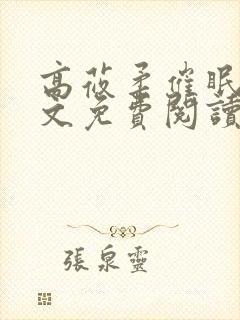 高莜柔催眠
文免費閱讀
張泉靈